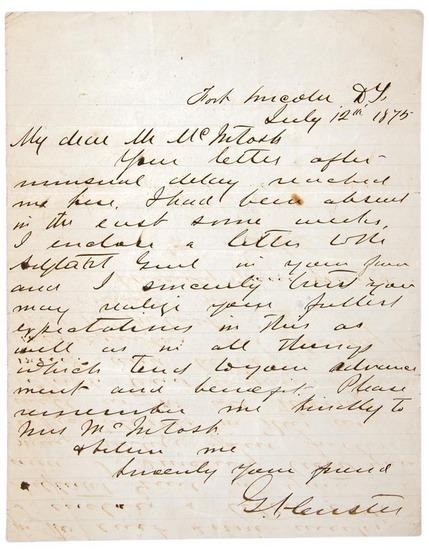 Fort Lincoln D.T.
July 12th 1875
My dear Mr McIntosh
Your letter after
unusual delay reached
me here. I had been absent
in the east some weeks.
I enclose a letter to the
Adjutant Genl in your favor
and I sincerely trust you
may realize your fullest
expectations in this as
well as in all things
which tend to your advance
ment and benefit. Please
remember me kindly to
Mrs McIntosh
& believe me
Sincerely your friend
G A Custer